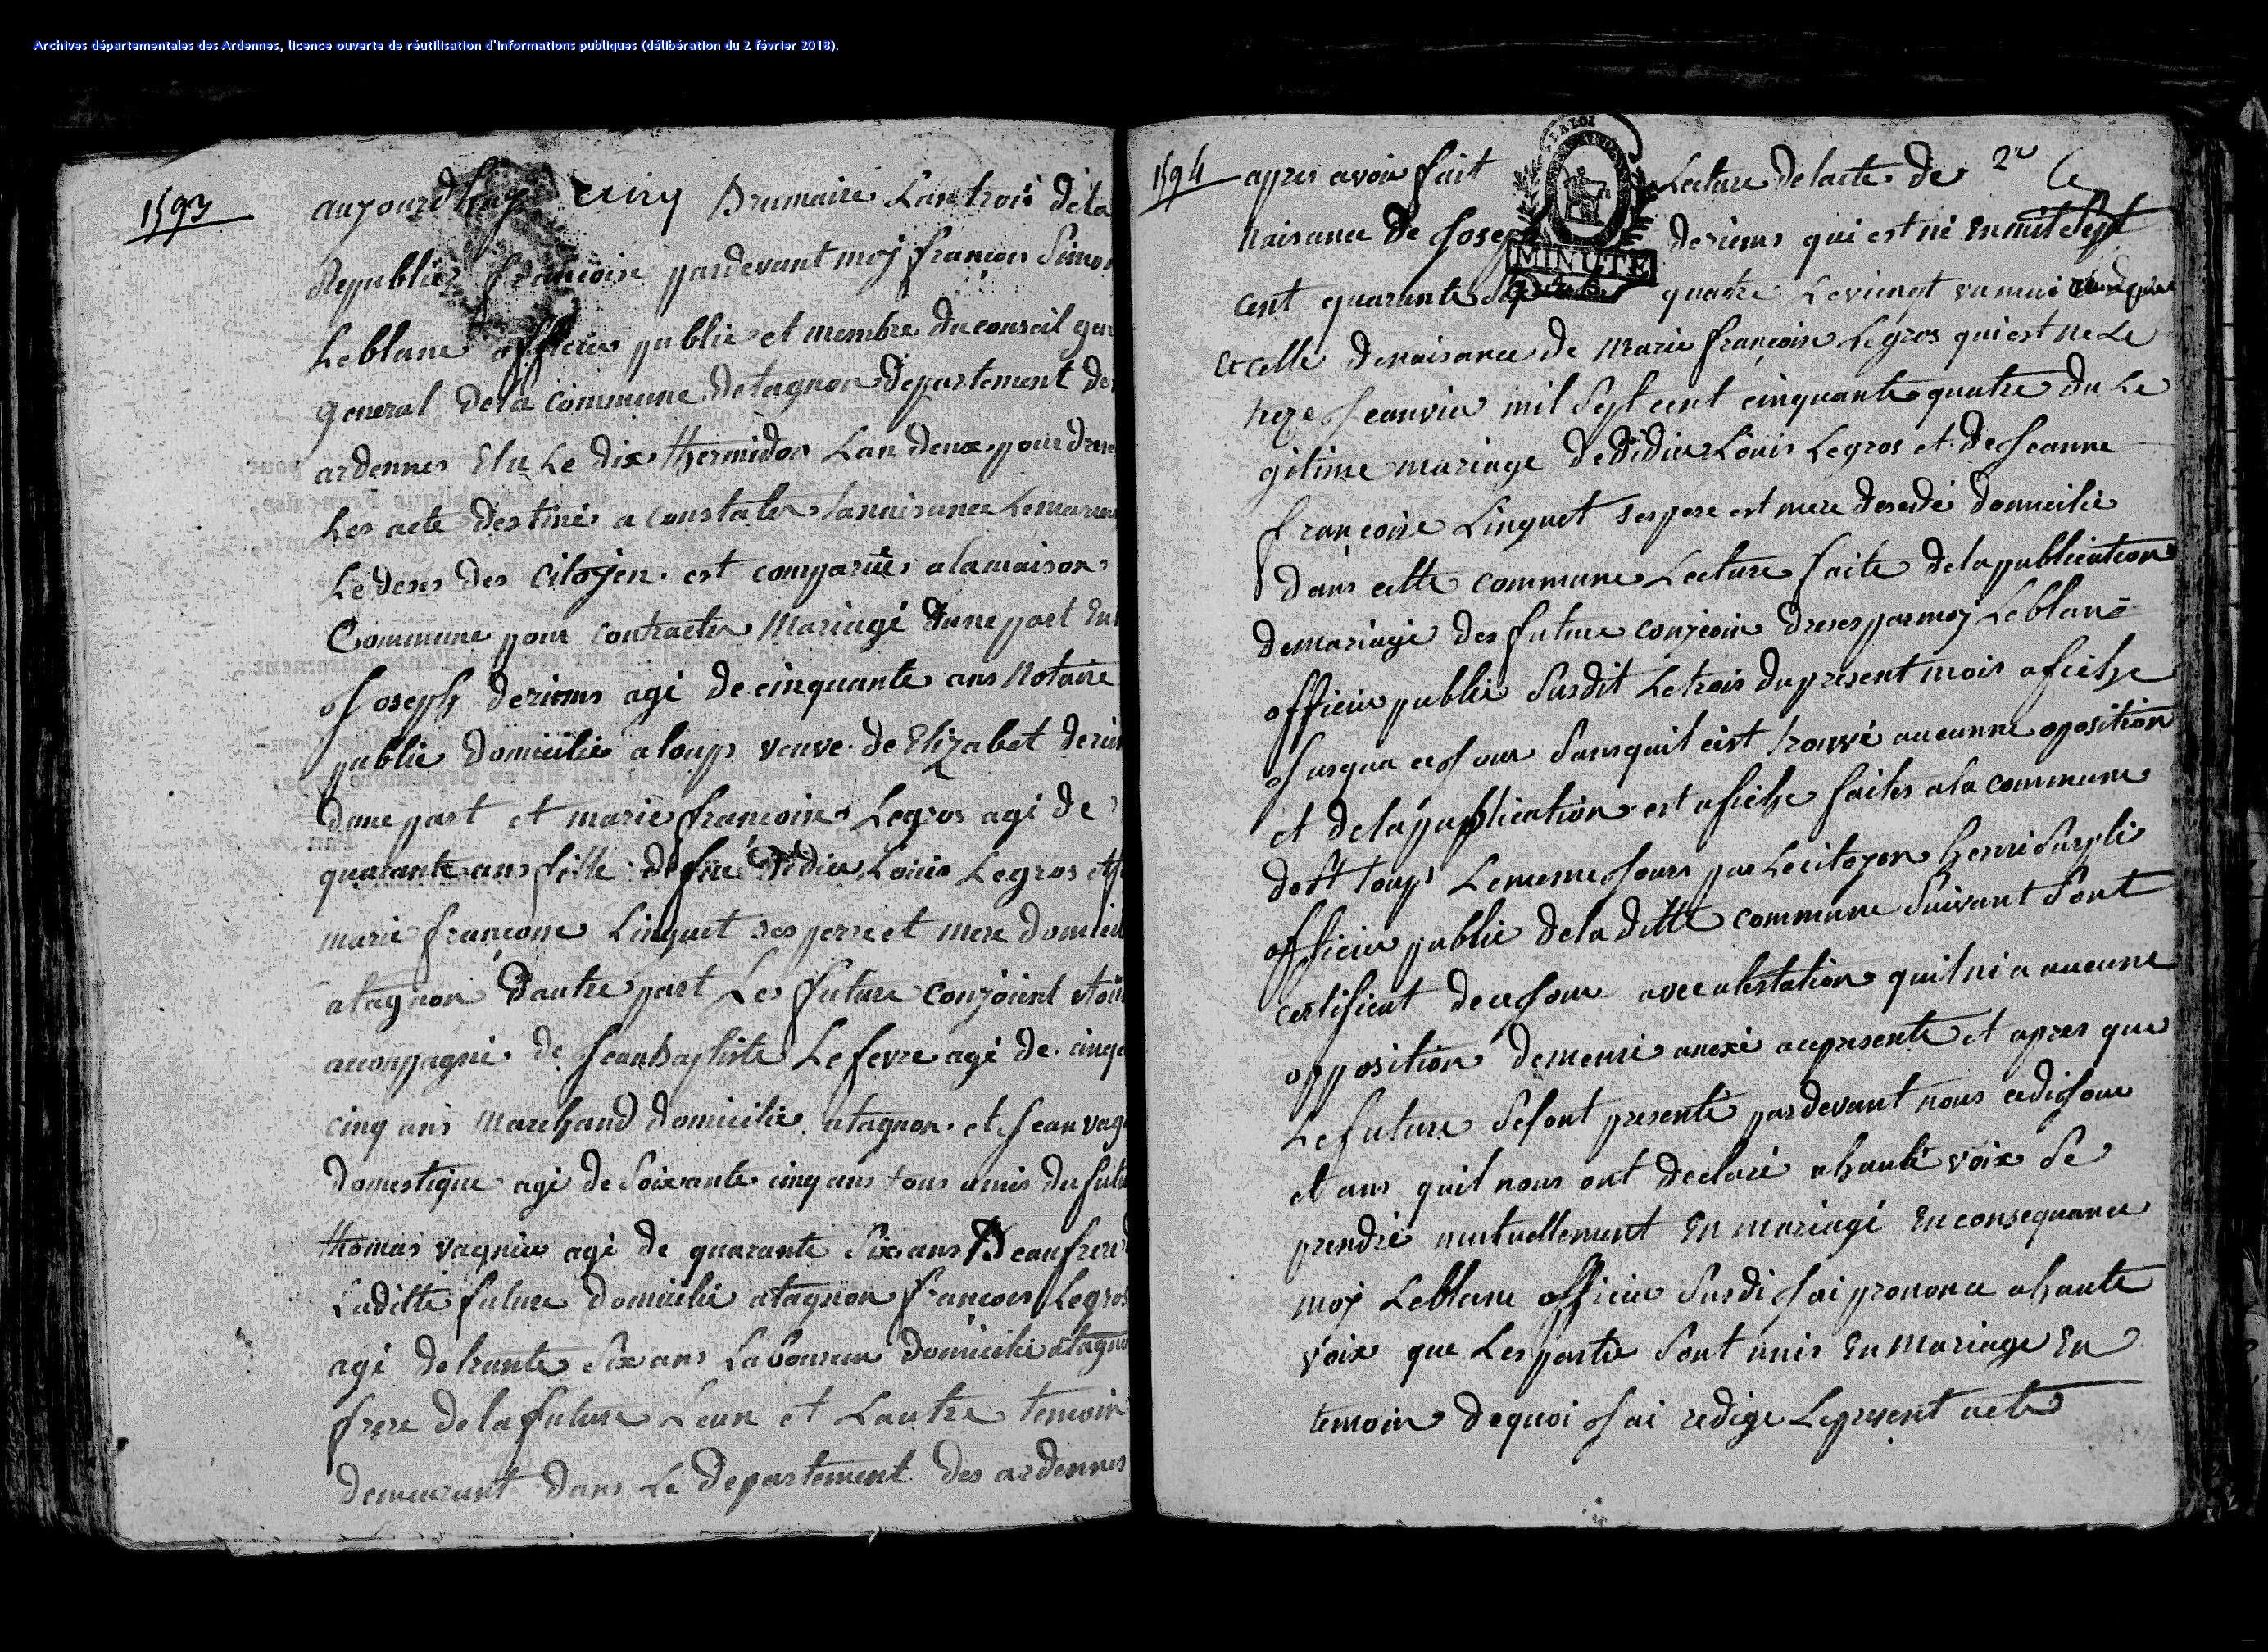 Archives départementales des Ardennes, licence ouverte de réutilisation d'informations publiques (délibération du 2 février 2018).
1593
aujourdhuy cinq Brumaire Lan trois dela
Republic francoise pardevant moy francois Simon
Leblanc officier public et membre du conseil gen
general dela commune detagnon departement des
ardennes Elu Le dix thermidor Lan deux pour dress
Les acte destiné a constater lanaisance Lemariage
Le deses des Citoyen est comparus alamaison
Commune pour contracter Mariage dune part
Joseph deriems agé de cinquante ans Notaire
public domicilie a loup veuve de Elizabet
dune part et marie francoise Legros agé de
quarante ans fille defue didier Louis Legros et
marie francoise Linguet ses perre et mere domicil
atagnon dautre part Les future conjoient
acompagné de Jeanbaptiste Lefevre agé de cinq
cinq ans Marchand domicilie atagnon et Jean
domestique agé de Soixante cinq ans tous amis du futu
thomas vagnier agé de quarante Six ans Beaufrere
Laditte future domicilié atagnon francois Legros
agé detrante Six ans Laboureur domicilié atagnon
frere dela future Leun et Lautre temoin
demeurant dans Le departement des ardennes
1594
apres avoir fait Lecture delacte de
LA LOI
MINUTE
naisance de Joseph deriems qui est né En mil Sept
cent quarante quatre Levingt un mai
Et celle denaisance de Marie francoise Legros qui est ne Le
Jeanvier mil Sept cent cinquante quatre du Le
gitime mariage dedidier Louis Legros et de Jeanne
francoise Linguet ses pere est mere desedé domicilie
dans cette commune Lecture faite dela publication
demariage des future conjoin dreses par moy Leblanc
officier public Susdit Le trois du present mois afiche
Jusqua ce Jour Sansquil eist trouvé aucunne oposition
et dela publication est afiche faites ala commune
de loup Lememe Jours par Lecitoyen henri
officier public deladitte commune Suivant Sont
certificat dece Jour avec atestation quil ni a aucune
opposition demeuré anexé aupresente et apres que
Le future Sesont presenté pardevant nous cedi Jour
et ans quil nous ont declaré ahaute voix Se
prendre mutuellement En mariage En consequance
moy Leblanc officier Susdi Jai prononce ahaute
voix que Les partie Sont unis En Mariage En
temoin dequoi Jai redige Lepresent acte